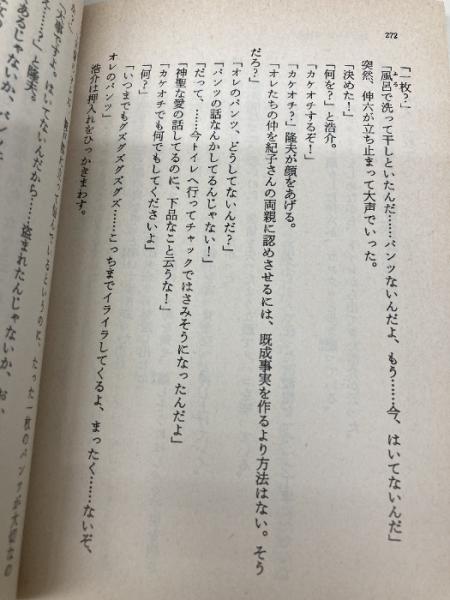 272
「一枚？」
「風呂で洗って干しといたんだ……パンツないんだよ、もう……今、はいてないんだ」
突然、伸六が立ち止まって大声でいった。
「決めた！」
「何を？」と浩介。
「カケオチするぞ！」
「カケオチ？」隆夫が顔をあげる。
「オレたちの仲を紀子さんの両親に認めさせるには、既成事実を作るより方法はない。そう
だろ？」
「オレのパンツ、どうしてないんだ？」
「パンツの話なんかしてるんじゃない！」
「だって、……今トイレへ行ってチャックではさみそうになったんだよ」
「神聖な愛の話してるのに、下品なこと云うな！」
「カケオチでも何でもしてくださいよ」
「何？」
「いつまでもグズグズグズグズ……こっちまでイライラしてくるよ、まったく……ないぞ、
オレのパンツ」
浩介は押入れをひっかきまわす。
んでいるというのに、たった一枚のパンツが大切なの
「大事ですよ。はいてないんだから……盗まれたんじゃないか、お、
……？」と隆夫。
あるじゃないか、パンツ